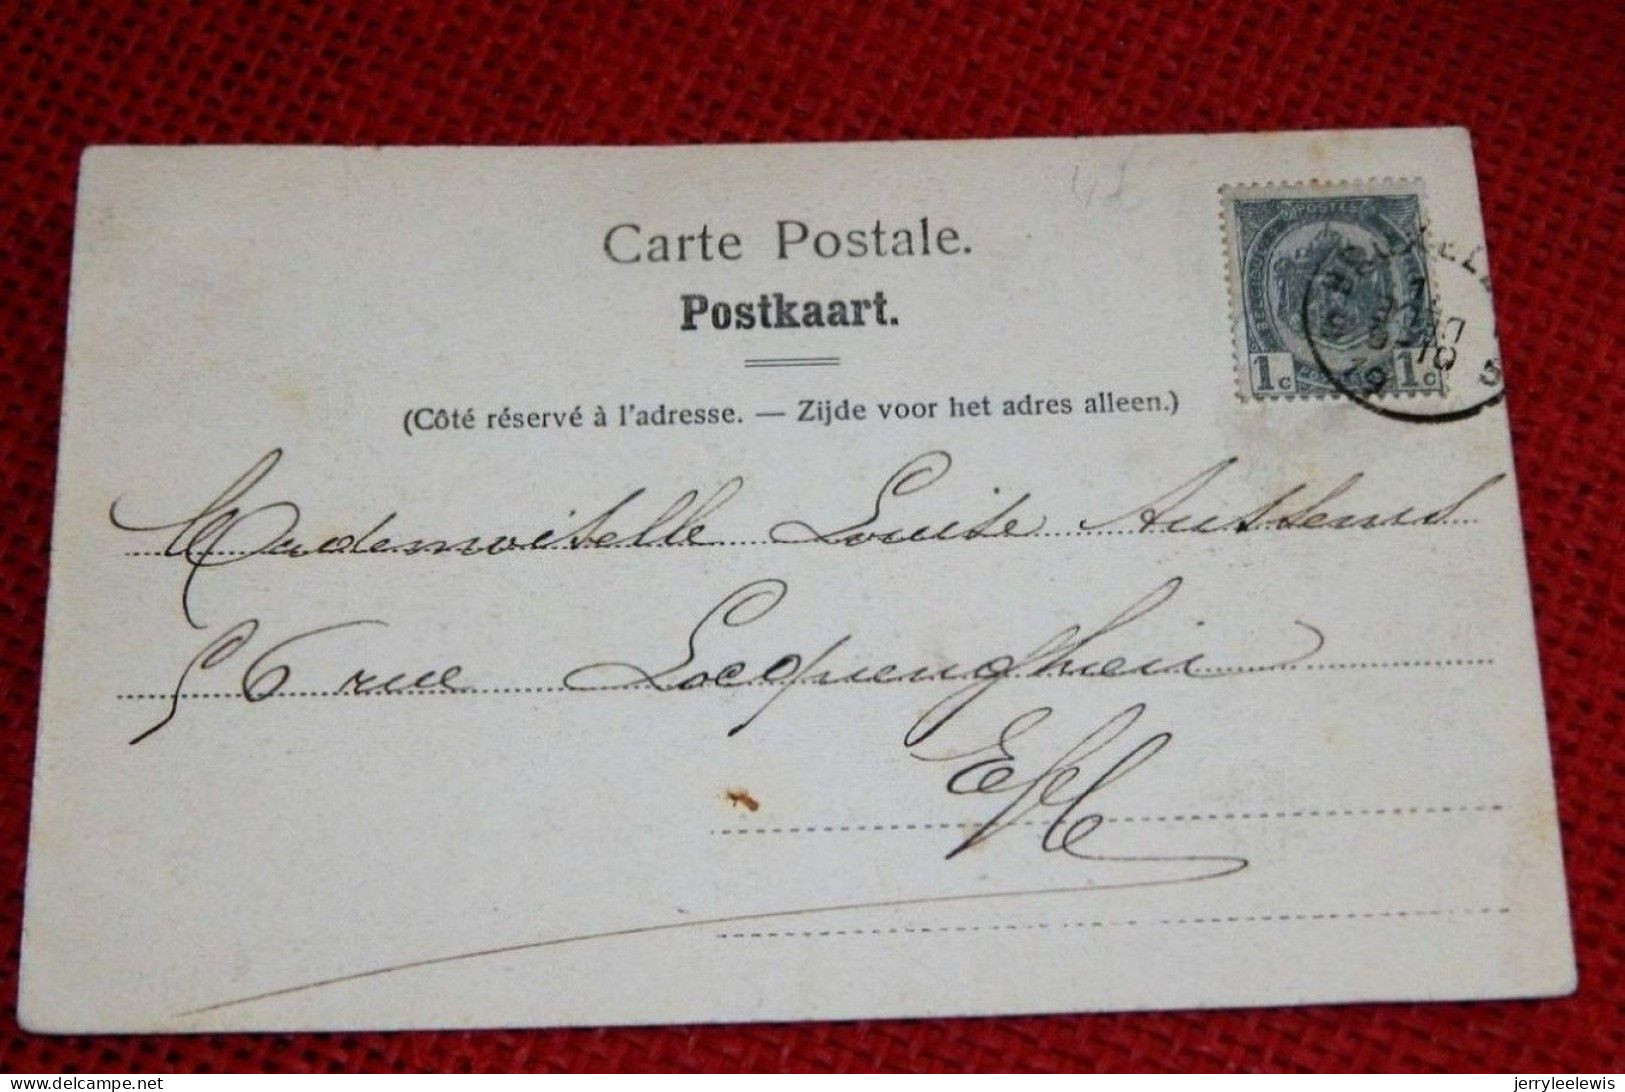 Carte Postale.
Postkaart.
(Côté réservé à l'adresse. — Zijde voor het adres alleen.)
POSTES
1c 1c
Mademoiselle Louise Aussems
56 rue Locquenghien
E/V
jerryleelewis